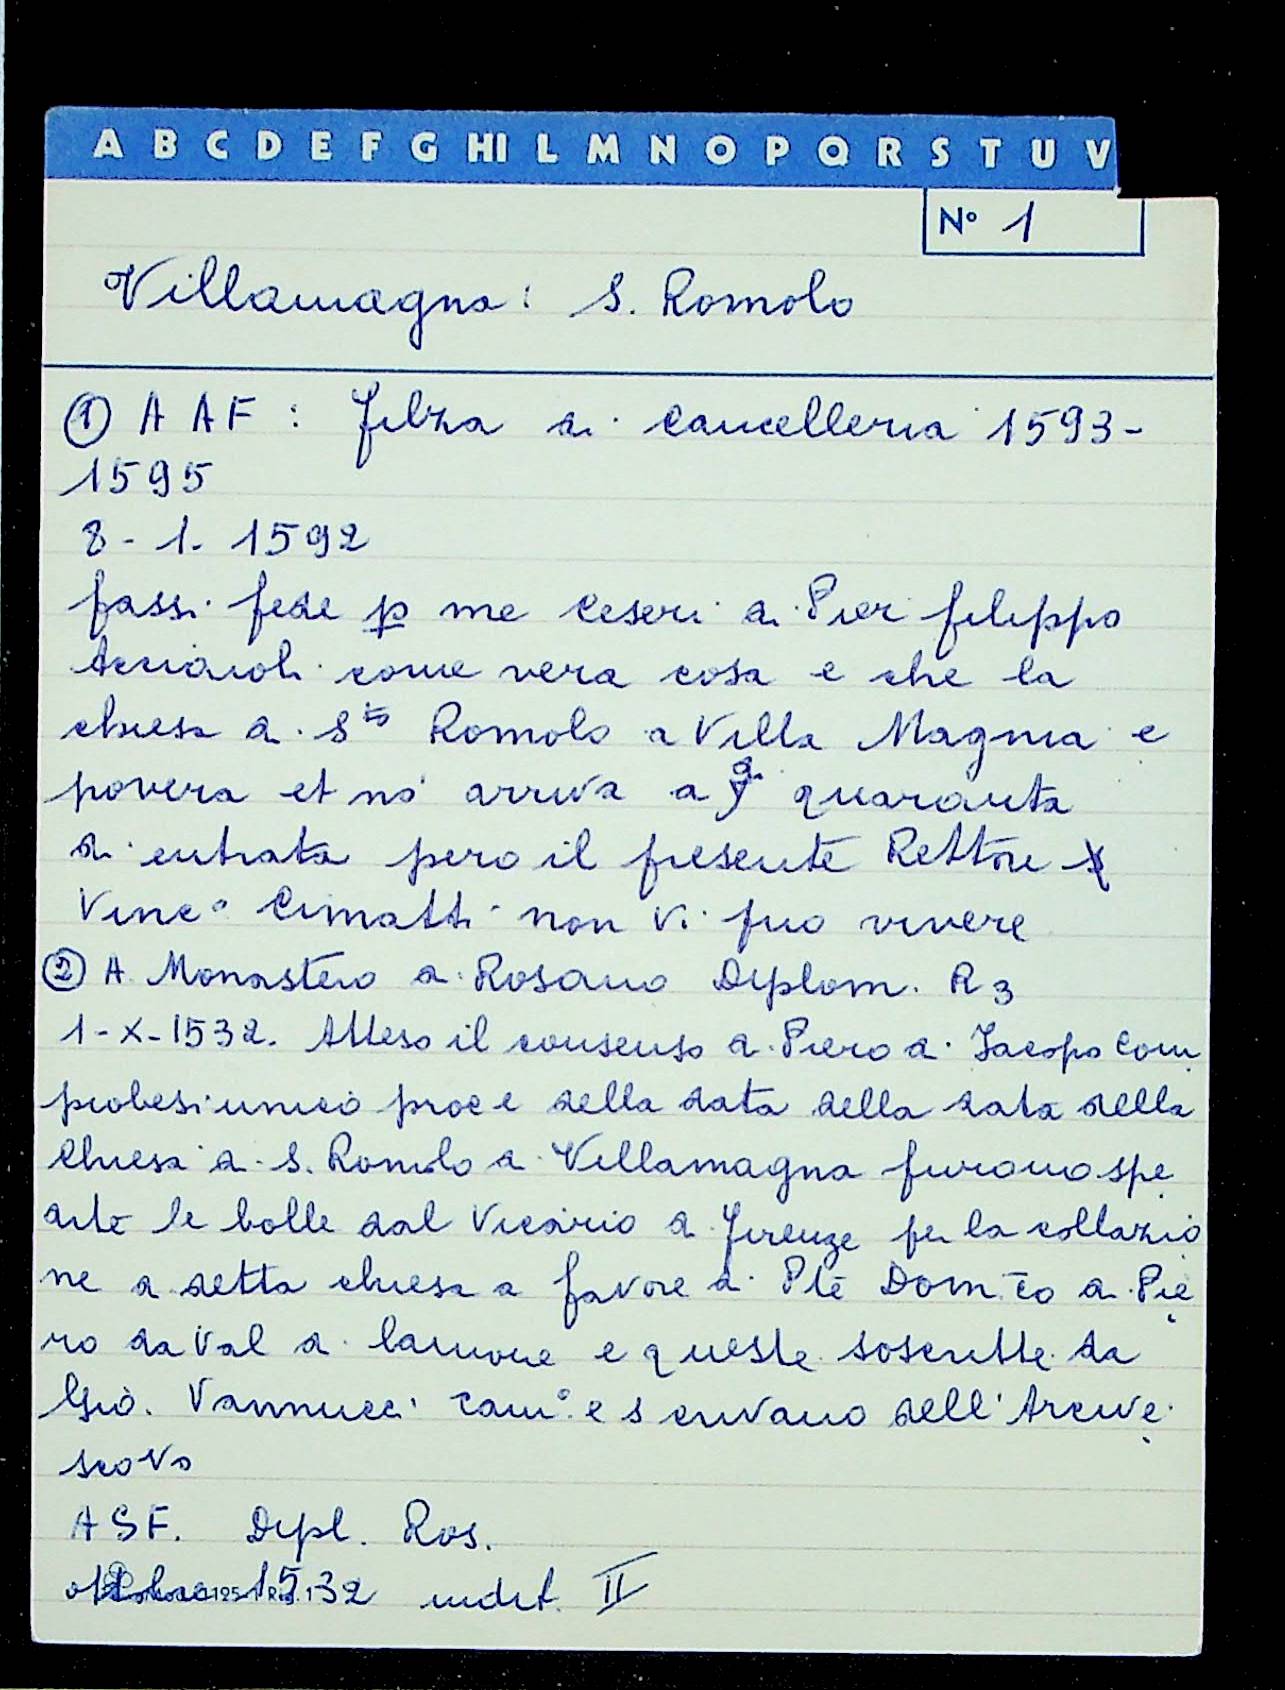 A B C D E F G HI L M N O P Q R S T U V
N° 1
Villamagna: S. Romolo
① A A F: filza di cancelleria 1593-
1595
8-1. 1592
fassi fede p me Ceseri di Pier filippo
Acciaioli come vera cosa e che la
chiesa di S.to Romolo a Villa Magnia e
povera et nō arriva a quaranta
di entrata pero il presente Rettore
Vinc° Cimatti non vi puo vivere
② A. Monastero di Rosano Diplom. R 3
1-X-1532. Atteso il consenso di Piero di Jacopo Com
probesi unico proc e della data della data della
Chiesa di S. Romolo a Villamagna furono spe
dite le bolle dal Vicario di Firenze per la collazio
ne di detta chiesa a favore di Pte Dom.co di Pie
ro da Val di Lamone e queste soscritte da
Gio. Vannucci Can° e scrivano dell'Arcive
scovo
ASF. Dipl. Ros.
ottobre 1532 indit. II